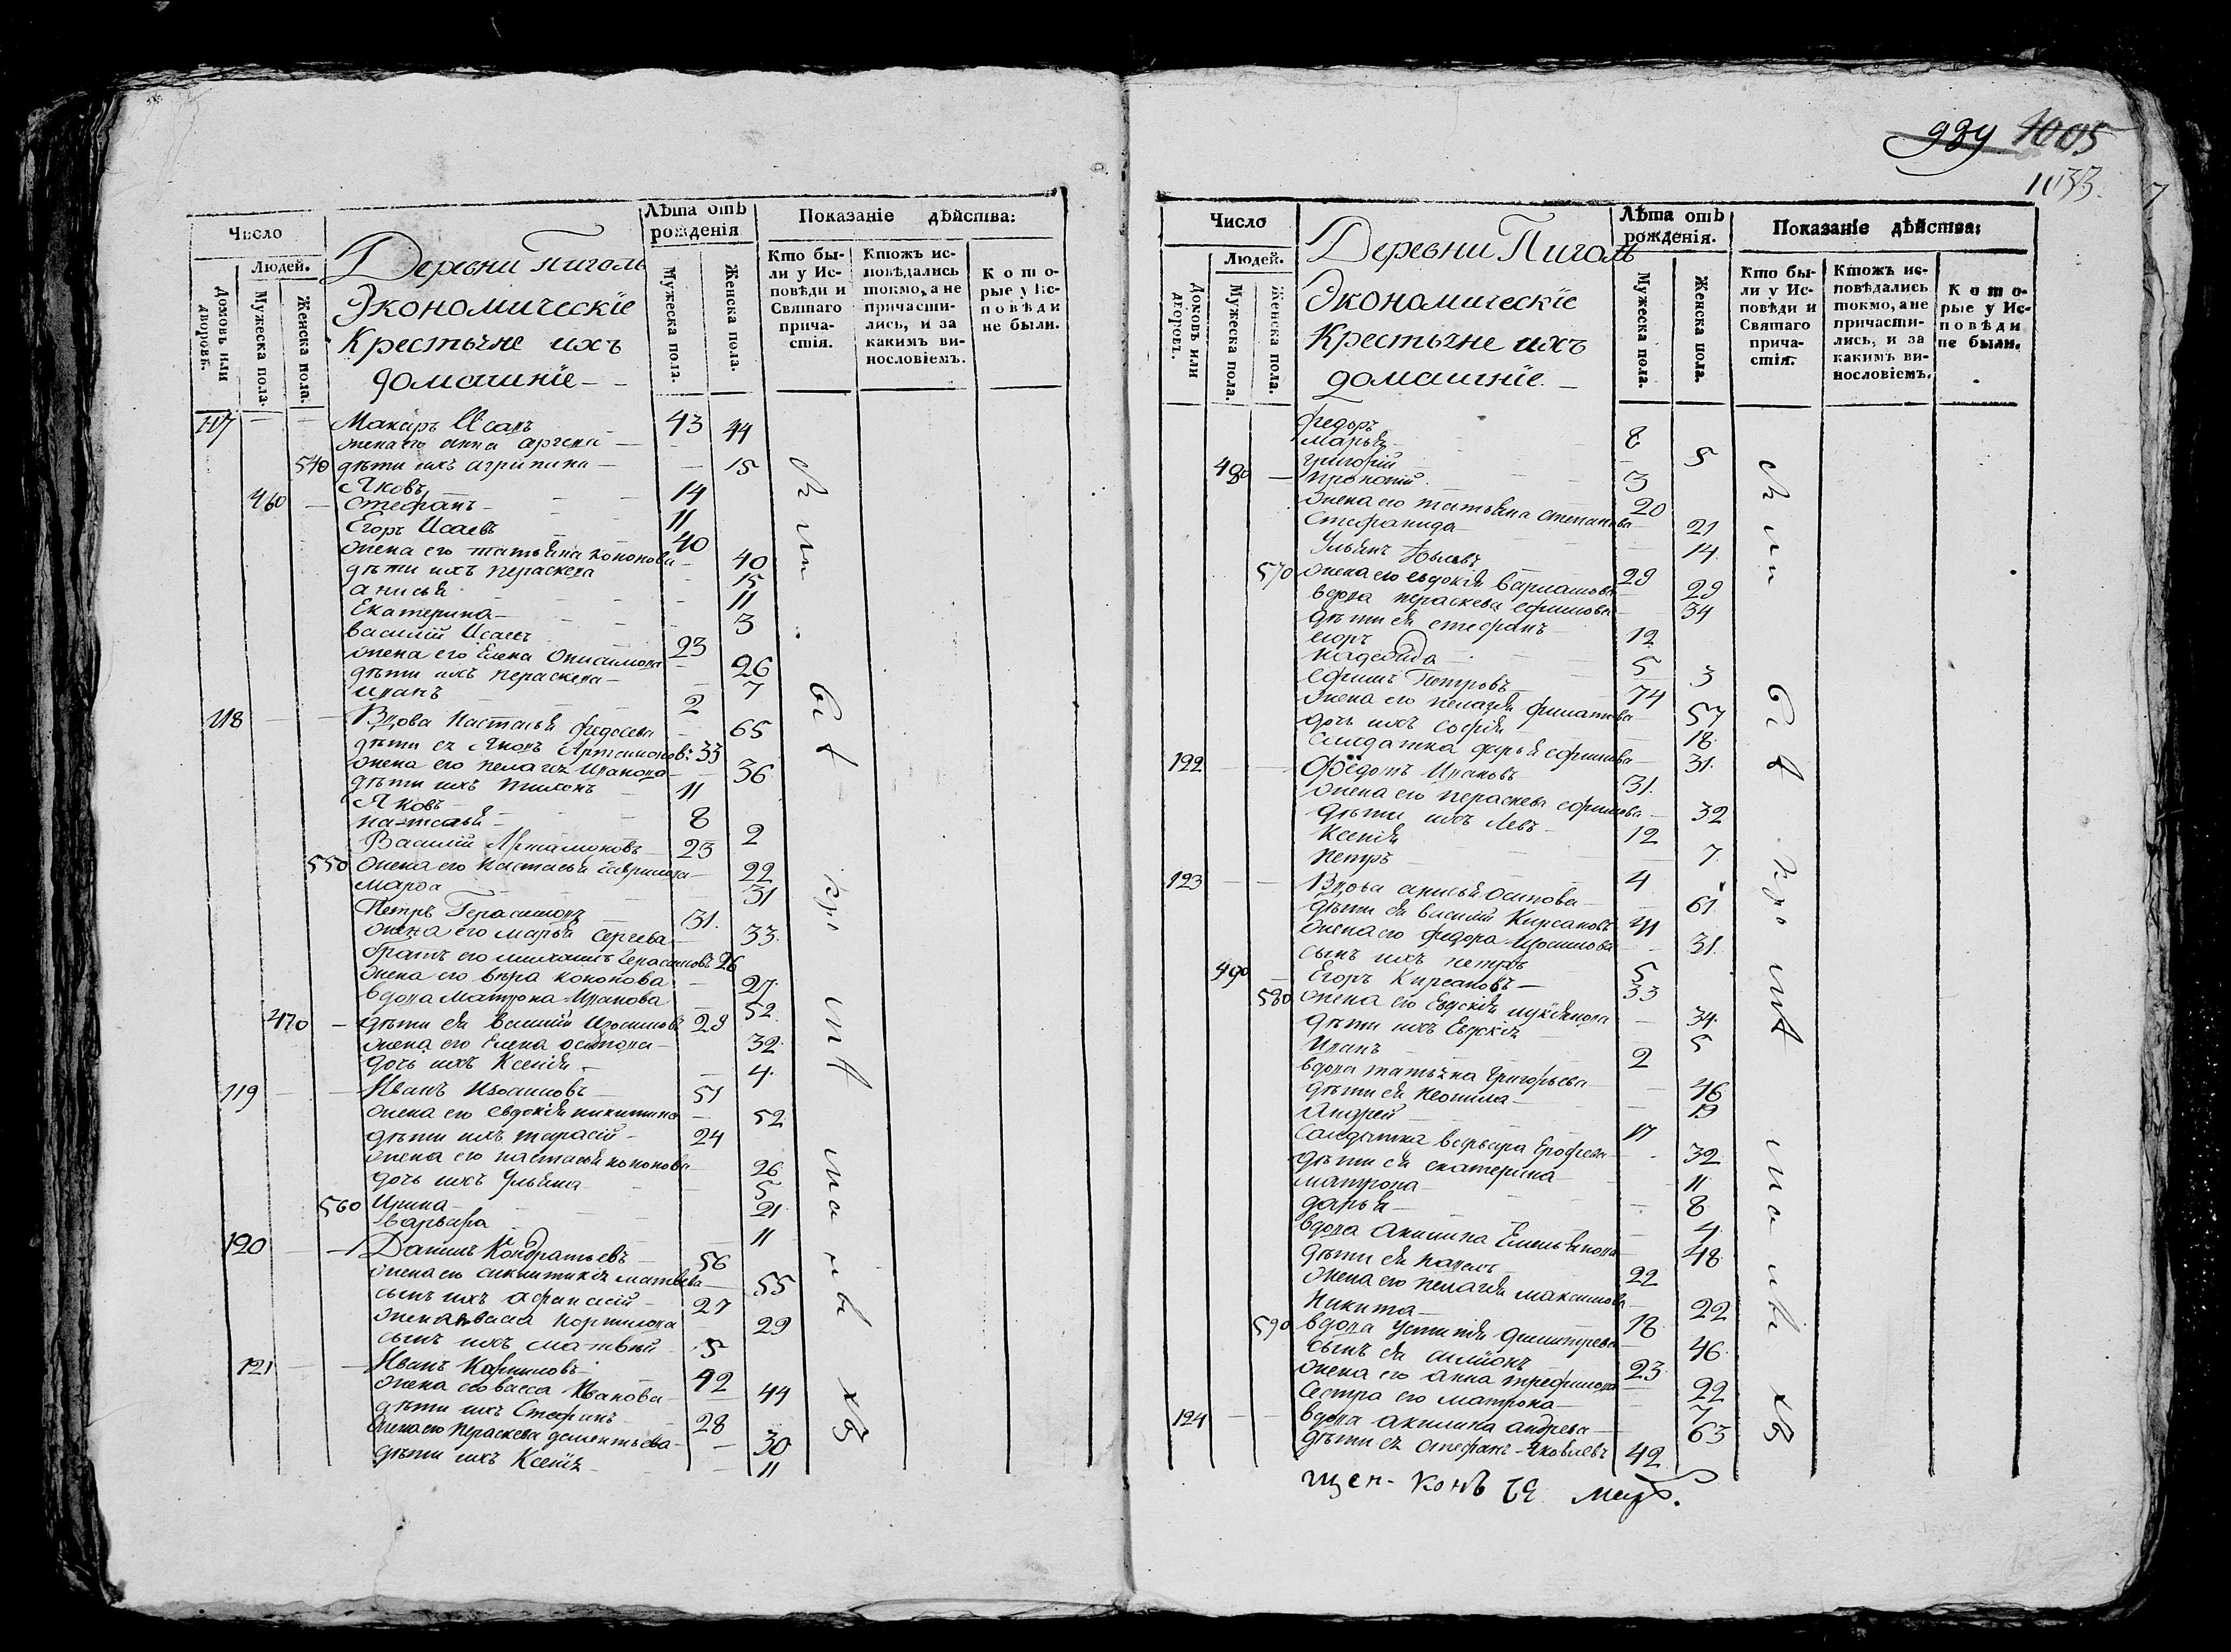 Число
Людей.
Домовъ или дворовъ.
Мужеска пола.
Женска пола.
Деревни Пиголь
Экономическіе
Крестьяне ихъ
домашніе
Лѣта отъ рожденія
Мужеска пола.
Женска пола.
Показаніе дѣйства:
Кто были у Исповѣди и Святаго причастія.
Ктожъ исповѣдались токмо, а не причастились, и за какимъ винословіемъ.
Которые у Исповѣди не были.
117 Макаръ Исаевъ 43
жена его анна 44
540 дѣти ихъ агрипина 15
Яковъ 14
460 Стефанъ 11
Егоръ Исаевъ 40
жена его татьяна кононова 40
дѣти ихъ пераскева 15
анисья 11
Екатерина 3
василій Исаевъ 23
жена его Елена Онисимова 26
дѣти ихъ пераскева 7
иванъ 2
118 Вдова Настасья федосева 65
дѣти ея Яковъ Артамоновъ 33
жена его пелагея Иванова 36
дѣти ихъ тихонъ 11
Яковъ 8
наталья 2
Василій Артамоновъ 23
550 жена его настасья Гаврилова 22
марфа 31
Петръ Герасимовъ 31.
жена его марья Сергева 33.
братъ его михаилъ Герасимовъ 26
жена его вѣра кононова 27.
вдова Матрона Иванова 52.
470 дѣти ея василій Изосимовъ 29
жена его Елена осипова 32.
дочь ихъ Ксенія 4.
119 Иванъ Изосимовъ 51
жена его евдокія никитина 52
дѣти ихъ тарасій 24
жена его настасья кононова 26
дочь ихъ Ульяна 5
560 Ирина 21.
Варвара 11
120 Данилъ Кондратьевъ 56
жена его матвева 55
сынъ ихъ афанасій 27
жена васса корнилова 29
сынъ ихъ матвей 5
121 Иванъ 42
жена его васса Иванова 44
дѣти ихъ Стефанъ 28
жена его пераскева дементьева 30
дѣти ихъ Ксенія 11
989 1005
1033.
Число
Людей.
Домовъ или дворовъ.
Мужеска пола.
Женска пола.
Деревни Пиголь
Экономическіе
Крестьяне ихъ
домашніе
Лѣта отъ рожденія.
Мужеска пола.
Женска пола.
Показаніе дѣйства:
Кто были у Исповѣди и Святаго причастія.
Ктожъ исповѣдались токмо, а не причастились, и за какимъ винословіемъ.
Которые у Исповѣди не были.
федоръ 8
марья 5
480 григорій 3
прокопій 20
жена его татьяна степанова 21
Стефанида 14.
Ульянъ 29
570 жена его евдокія варламова 29
вдова пераскева ефимова 34
дѣти ея стефанъ 12
егоръ 5
надежда 3
ефимъ Петровъ 74
жена его пелагея филатова 57
дочь ихъ софія 18.
салдатка дарья ефимова 31.
122 Федотъ Ивановъ 31.
жена его пераскева ефимова 32
дѣти ихъ Левъ 12
Ксенія 7
петръ 4
123 Вдова анисья осипова 61.
дѣти ея василій Кирсановъ 41
жена его федора Изосимова 31.
сынъ ихъ петръ 5
490 Егоръ Кирсановъ 33
580 жена его Евдокія лукіянова 34.
дѣти ихъ Евдокія 5
Иванъ 2
вдова татьяна григорьева 46
дѣти ея неонила 19
Андрей 17
салдатка варвара Ерофеева 32
дѣти ея екатерина 11
матрона 8
дарья 4
вдова акилина Емельянова 48
дѣти ея павелъ 22
жена его пелагея максимова 22
никита 18
590 вдова Устинья дмитрева 46
сынъ ея 23.
жена его анна трефилова 22
Сестра его матрона 7
124 вдова акилина андрева 63
дѣти ея стефанъ Яковлевъ 42